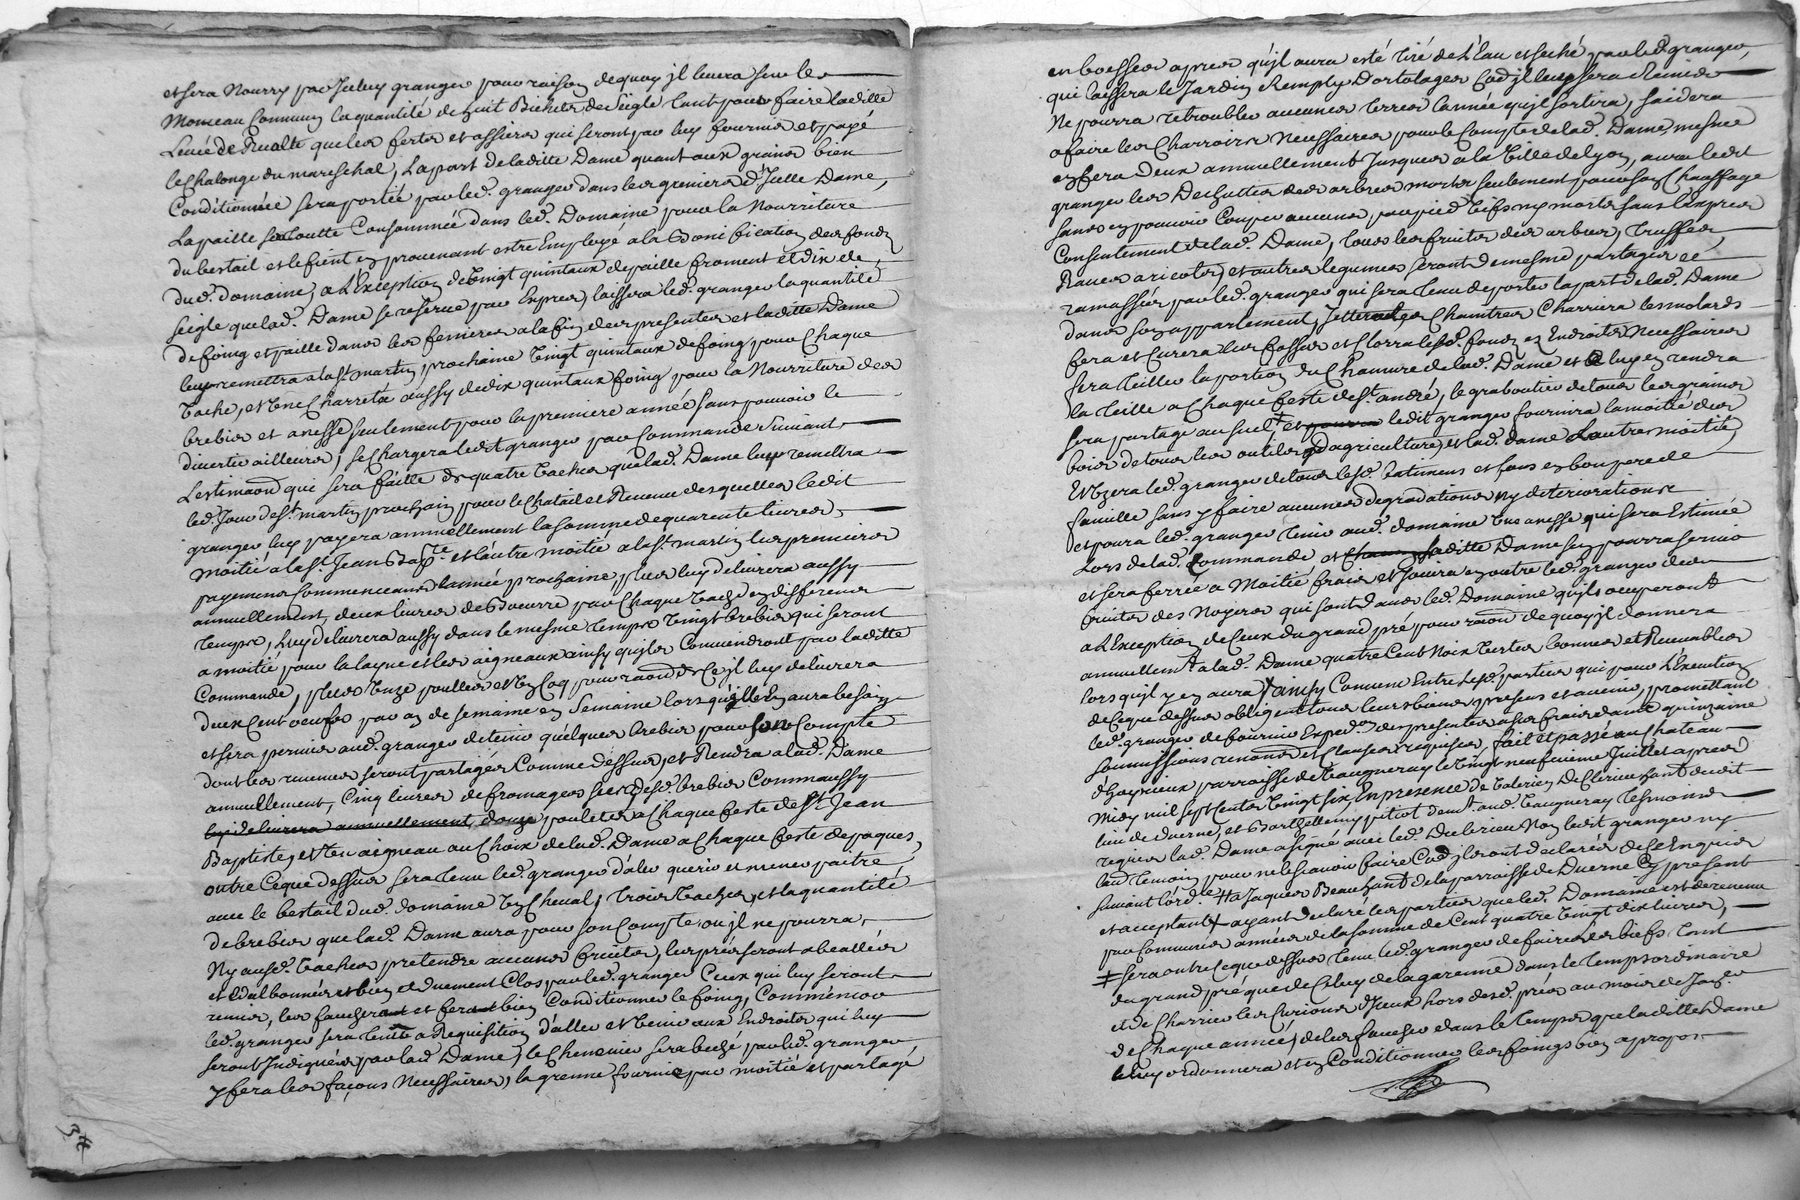 et sera Nourry par Iceluy granger pour raison de quoy jl levera sur le
Monceau Commung la quantité de huit Bichets de seigle tant pour faire laditte
Levée de Rualte que les fertes et assiers qui seront par luy fournis et payé
le Chalonge du mareschal, La part de laditte Dame quant aux grains bien
Conditionnée sera portée par led. granger dans les greniers d'Icelle Dame,
La paille sera toutte Consommée dans led. Domaine pour la Nourriture
du bestail et le fient en provenant estre Employé a la Bonification des fonds
dud. domaine, a L'Exception de Vingt quintaux de paille froment et dix de
seigle que lad. Dame se reserve par Exprès, laissera led. granger la quantité
de foing et paille dans les fenieres a la fin des presentes et laditte Dame
luy remettra a la st. martin prochaine Vingt quintaux de foing pour Chaque
Vache, et Une Charretée aussy de dix quintaux foing pour la Nourriture des
brebies et anesse seulement pour la premiere année sans pouvoir le
divertir ailleurs, se Chargera ledit granger par Commande Suivant
L'estimaon qui sera faitte de quatre Vaches que lad. Dame luy remettra
led. Jour de st. martin prochain pour le Chatail et Revenu desquelles ledit
granger luy payera annuellement la somme de quarente livres,
moitié a la st. Jean Bapte. et l'autre moitié a la st. martin les premiers
payemens Commenceans l'année prochaine, plus luy delivrera aussy
annuellement, deux livres de Boeurre par Chaque Vache en differens
temps, Luy delivrera aussy dans le mesme temps Vingt brebies qui seront
a moitié pour la layne et les aigneaux ainsy qu'ils Conviendront par laditte
Commande, plus Onze poulles et Un Coq pour raon de Ce jl luy delivrera
deux Cent oeufs par an de semaine en Semaine lors qu'ille En aura besoing
et sera permis aud. granger de tenir quelques brebies pour son Compte
dont les revenus seront partagés Comme dessus, et Rendra a lad. Dame
annuellement, Cinq livres de fromages secs desd. brebies Comm aussy
luy delivrera annuellement douze poulets a Chaque feste de St. Jean
Baptiste, et Un aigneau au Choix de lad. Dame a Chaque feste de paques,
outre Ce que dessus sera Tenu led. granger d'aler querir et mener paitre
avec le bestail dud. domaine Un Cheval, trois Vaches, et la quantité
de brebies que lad. Dame aura pour son Compte, ou jl ne pourra,
Ny ausd. Vaches pretendre aucunes fruites, les prés seront abeallés
et d'albonnés et bien et duement Clos par led. granger Ceux qui luy seront
remis, les fauchera et fera bien Conditionner le foing, Comme encor
led. granger sera tenu a Requisition d'aller et Venir aux Endroits qui luy
seront Indiqués par lad. Dame, le Chenevier sera beché par led. granger
y fera les façons Necessaires, la grenne fournie par moitié et partagé
3e
en bossées aprés qu'jl aura esté tiré de L'eau et seché par led. granger,
qui laissera le Jardin Remply d'ortolages Cod. jl luy sera Remis
Ne pourra retroubler aucunes terres l'année qu'jl sortira, s'aidera
a faire les Charrois Necessaires pour le Compte de lad. Dame mesme
en fera deux annuellement Jusques a la Ville de Lyon, aura ledit
granger les dechuttes des arbres morts seulement pour son Chauffage
sans en pouvoir Couper aucuns par pied Vifs ny morts sans l'exprés
Consentement de lad. Dame, tous les fruits des arbres, truffes,
Raves aricots, et autres legumes seront de mesme partagés et
ramassés par led. granger qui sera tenu de porter la part de lad. Dame
dans son appartement, Jettera les Chaintres Charriera les molards
fera et Curera les fosses et Clorra lesd. fonds es Endroits Necessaires
sera teiller la portion du Chanvre de lad. Dame et luy en rendra
la teille a Chaque feste de st. andré, le graboutir de tous les grains
sera partagé au suel + et pourra ledit granger fournira la moitié des
bois de tous les outils d'agriculture, et lad. dame L'autre moitié,
et Uzera led. granger de tous lesd. batimens et fons en bon pere de
famille sans y faire aucunes degradations ny deteriorations
et poura led. granger tenir aud. domaine Une anesse qui sera Estimée
Lors de lad. Commande et laditte Dame s'en pourra servir
et sera ferrée a Moitié frais et Jouira en outre led. granger des
fruits des Noyers qui sont dans led. Domaine qu'jls occuperont
a L'Exception de Ceux du grand pré pour raon de quoy jl donnera
annuellemt. a lad. Dame quatre Cent Noix Vertes bonnes et Recevables
lors qu'jl y en aura, ainsy Convenu Entre lesd. parties qui pour L'Execution
de Ce que dessus obligent tous leurs biens presens et avenir, promettant
led. granger de fournir Expedon. des presentes a ses frais dans quinzaine
soumissions renonons et Clauses requises, fait et passé au Chateau
d'hoyrieux parroisse de Vaugneray le Vingt neufvieme Juillet après
midy mil sept cents Vingt six, En presence de Valerien Declerieu hant du dit
lieu de duerne, et Barthellemy pitiot dant. aud. Vaugneray tesmoins
requis lad. Dame a signé avec led. Duclerieu Non ledit granger ny
led. temoin pour ne le scavoir faire Cod. jls ont declarés de Ce Enquis
suivant l'ordce. # a Jaques Beau hant de la parroisse de Duerne Cy present
et acceptant + ayant declaré les parties que led. Domaine est de revenu
par Communes années de la somme de Cent quatre Vingt dix livres,
# sera outre Ce que dessus tenu led. granger de faire les biefs tant
du grand pré que de Celuy de la garenne dans le temps ordinaire
et de Charrier les Curions d'Iceux hors desd. prés au mois de Janer.
de Chaque année, de les faucher dans le temps que laditte Dame
luy ordonnera et en Conditionner les foings bien a propos.